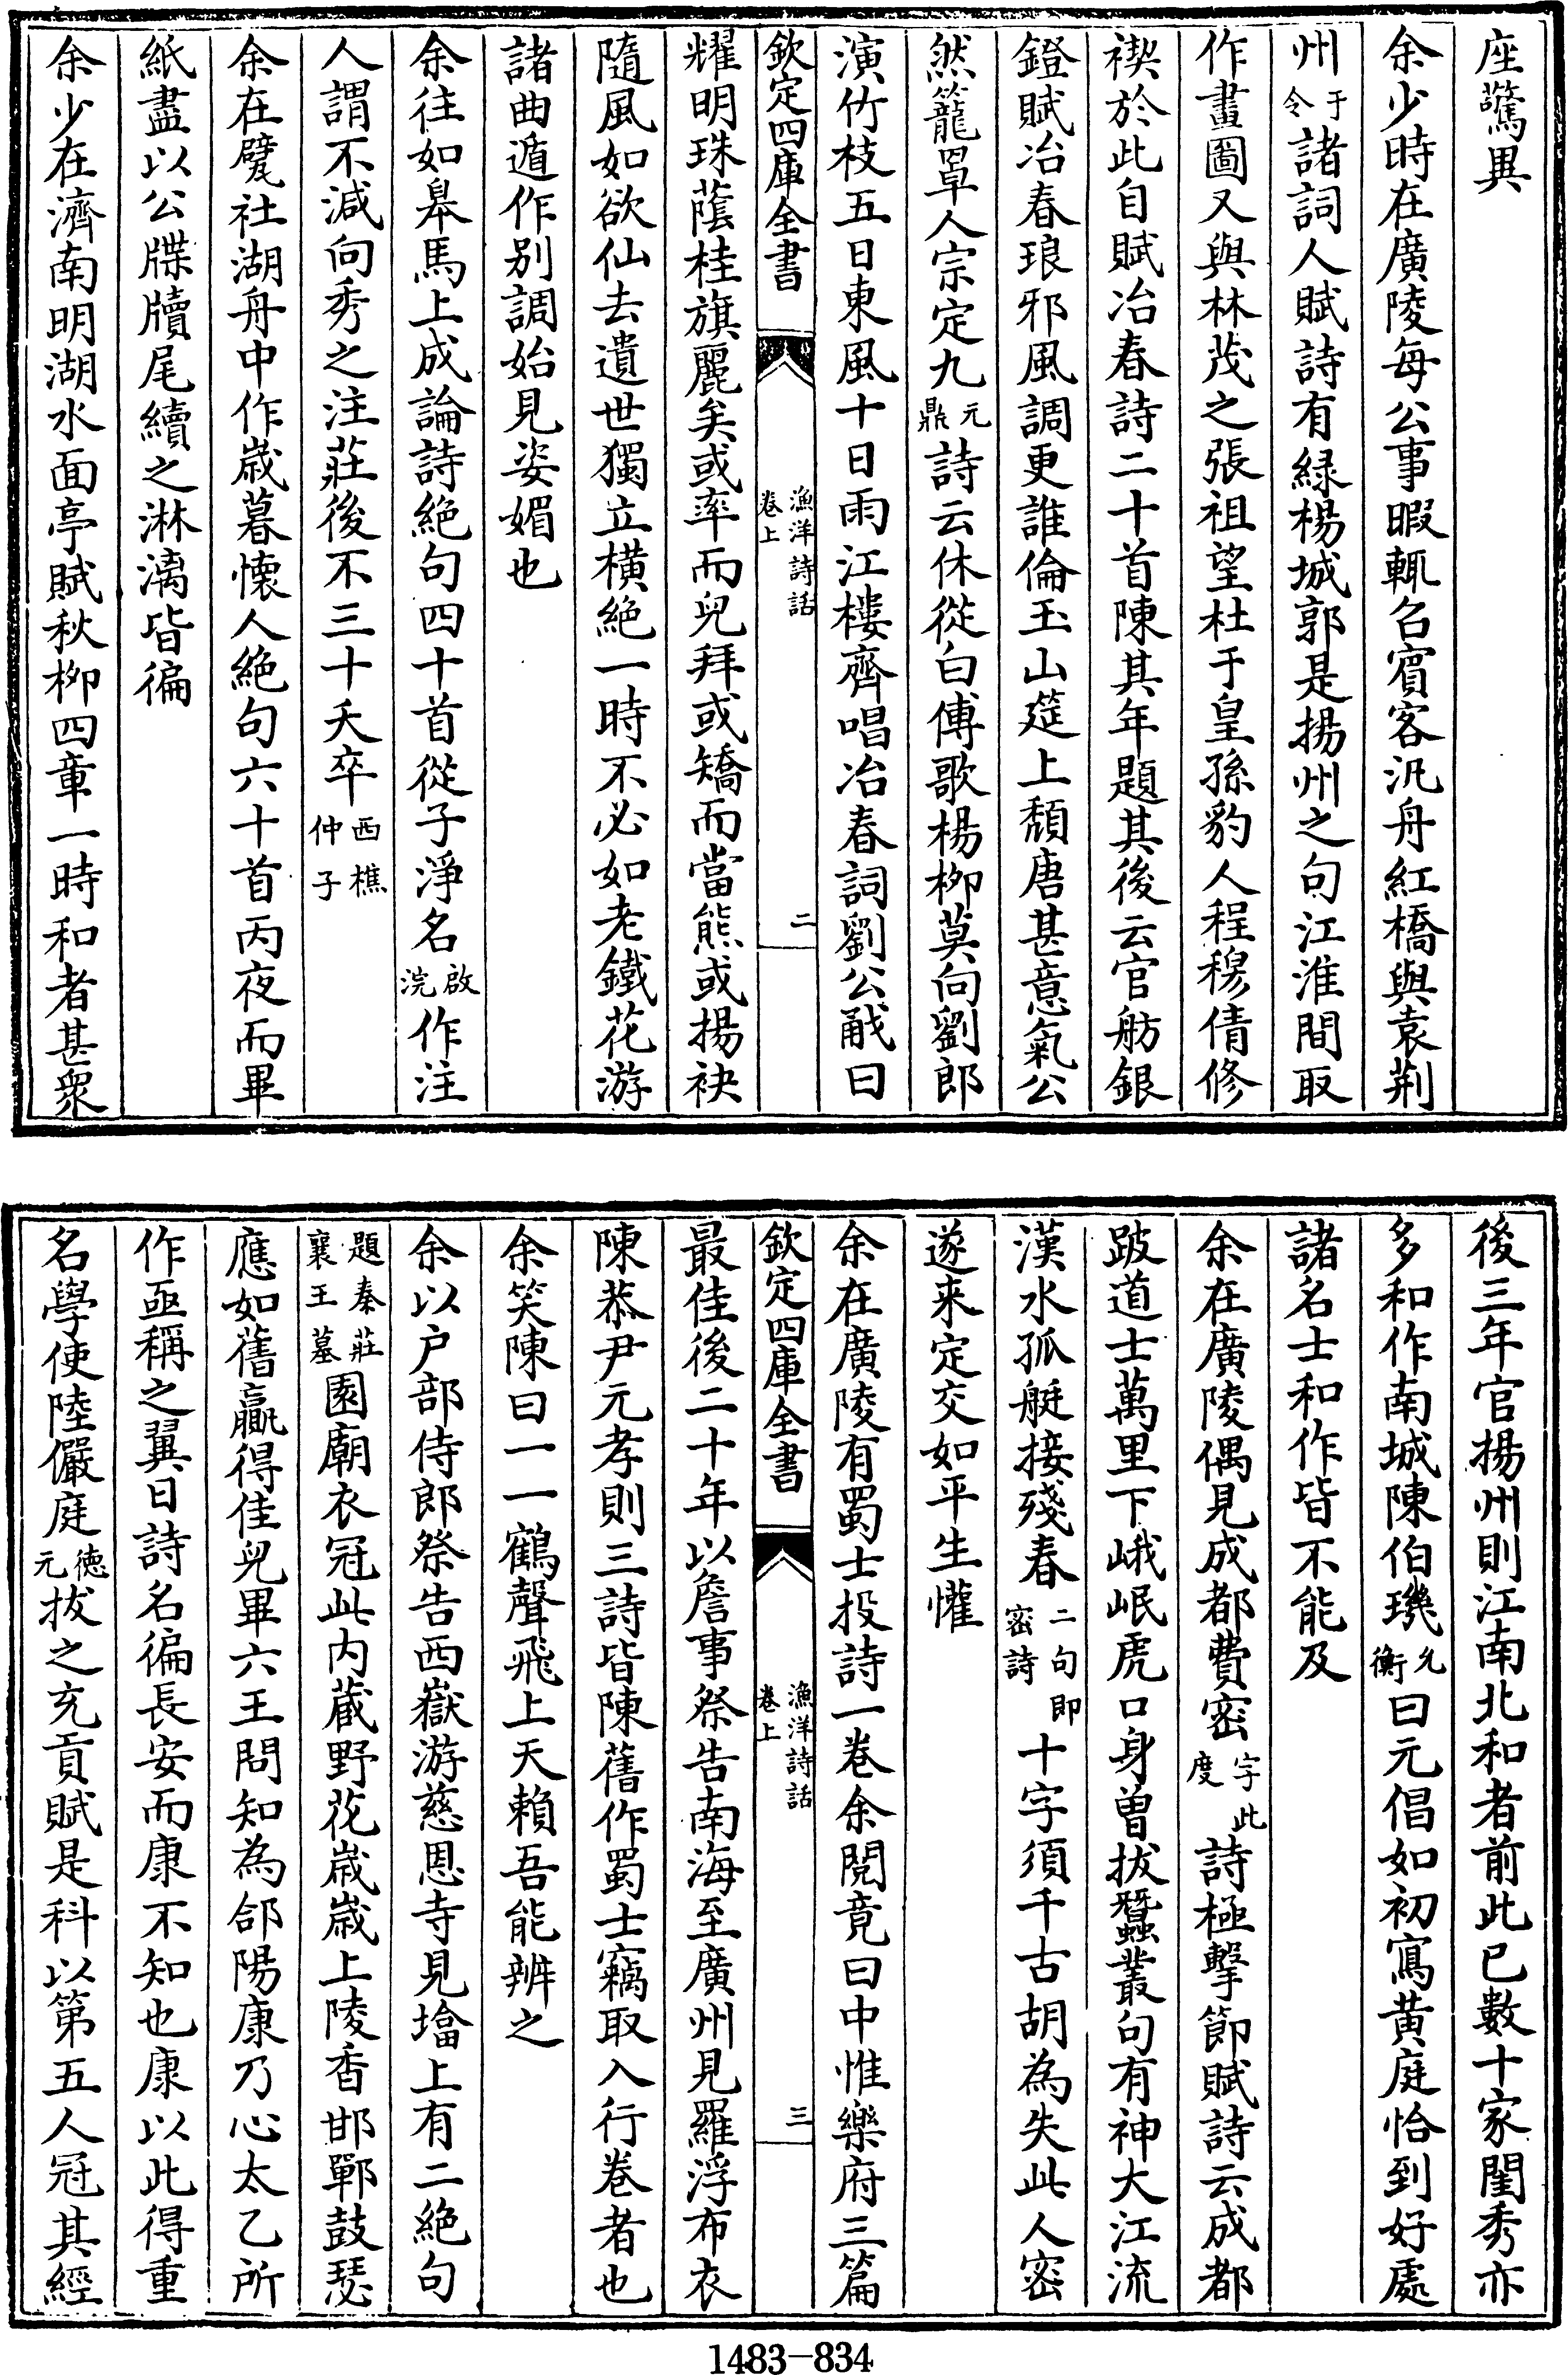 座驚異
余少時在廣陵每公事暇輒召賓客汎舟紅橋與袁荆
州于令諸詞人賦詩有緑楊城郭是揚州之句江淮間取
作畫圖又與林茂之張祖望杜于皇孫豹人程穆倩修
禊於此自賦冶春詩二十首陳其年題其後云官舫銀
鐙賦冶春琅邪風調更誰倫玉山筵上頽唐甚意氣公
然籠罩人宗定九元鼎詩云休從白傅歌楊柳莫向劉郎
演竹枝五日東風十日雨江樓齊唱冶春詞劉公㦷曰
欽定四庫全書
漁洋詩話
卷上
二
耀明珠蔭桂旗麗矣或率而兒拜或矯而當熊或揚袂
隨風如欲仙去遺世獨立橫絶一時不必如老鐵花游
諸曲遁作别調始見姿媚也
余往如臯馬上成論詩絶句四十首從子淨名啟浣作注
人謂不減向秀之注莊後不三十夭卒西樵仲子
余在甓社湖舟中作嵗暮懷人絶句六十首丙夜而畢
紙盡以公牒牘尾續之淋漓皆徧
余少在濟南明湖水面亭賦秋柳四章一時和者甚衆
後三年官揚州則江南北和者前此已數十家閨秀亦
多和作南城陳伯璣允衡曰元倡如初寫黄庭恰到好處
諸名士和作皆不能及
余在廣陵偶見成都費密字此度詩極擊節賦詩云成都
跛道士萬里下峨岷虎口身曾拔蠶叢句有神大江流
漢水孤艇接殘春二句即密詩十字須千古胡為失此人密
遂来定交如平生懽
余在廣陵有蜀士投詩一卷余閱竟曰中惟樂府三篇
欽定四庫全書
漁洋詩話
卷上
三
最佳後二十年以詹事祭告南海至廣州見羅浮布衣
陳恭尹元孝則三詩皆陳舊作蜀士竊取入行卷者也
余笑陳曰一一鶴聲飛上天賴吾能辨之
余以户部侍郎祭告西嶽游慈恩寺見墖上有二絶句
題秦莊襄王墓園廟衣冠此内蔵野花嵗嵗上陵香邯鄲鼓瑟
應如舊贏得佳兒畢六王問知為郃陽康乃心太乙所
作亟稱之翼日詩名徧長安而康不知也康以此得重
名學使陸儼庭徳元拔之充貢賦是科以第五人冠其經
1483-834